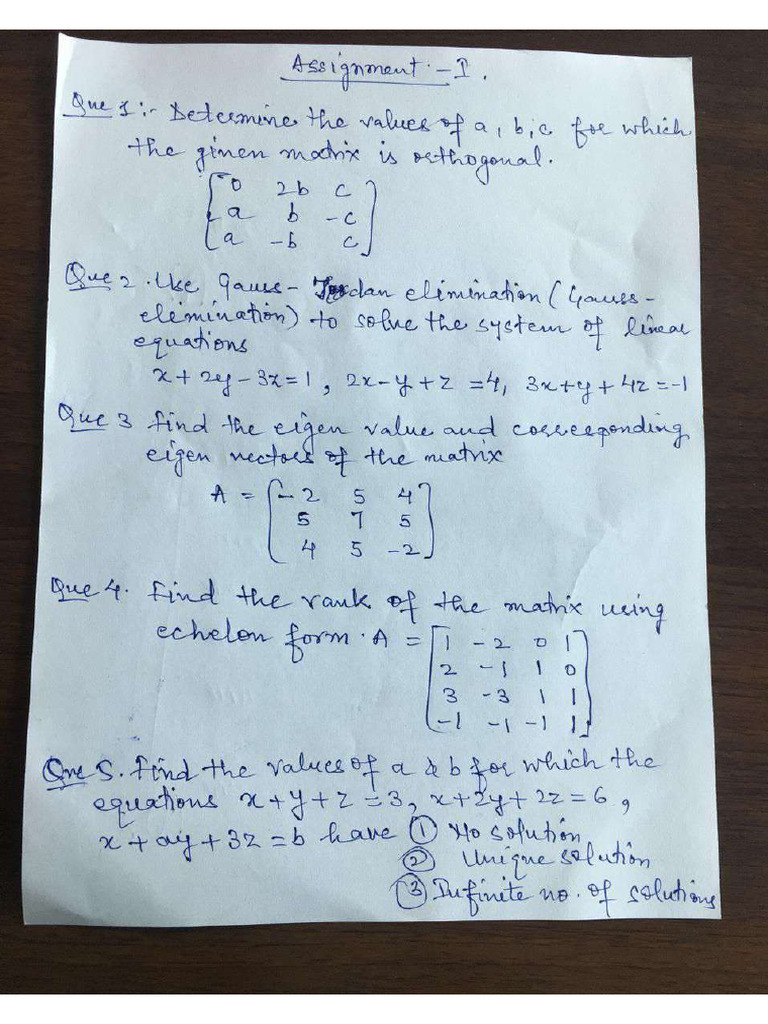 Assignment :- I.
Que 1:- Determine the values of a, b, c for which
the given matrix is orthogonal.
[0 2b c
a b -c
a -b c]
Que 2. Use Gauss - Jordan elimination (Gauss -
elimination) to solve the system of linear
equations
x + 2y - 3z = 1, 2x - y + z = 4, 3x + y + 4z = -1
Que 3 find the eigen value and corresponding
eigen vectors of the matrix
A = [-2 5 4
5 7 5
4 5 -2]
Que 4. Find the rank of the matrix using
echelon form. A = [1 -2 0 1
2 -1 1 0
3 -3 1 1
-1 -1 -1 1]
Que 5. Find the values of a & b for which the
equations x + y + z = 3, x + 2y + 2z = 6,
x + ay + 3z = b have ① No solution
② Unique solution
③ Infinite no. of solutions